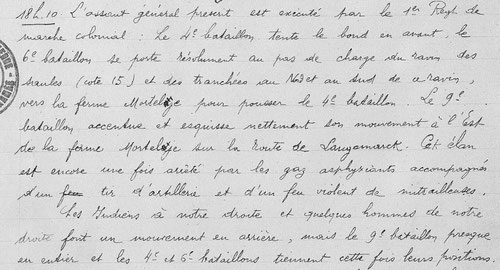 18h.10. L'assaut général présent est exécuté par le 1er Regt de
marche colonial : Le 4e bataillon tente le bond en avant, le
6e bataillon se porte résolument au pas de charge du ravin des
saules (cote 15) et des tranchées au Nord et au sud de ce ravin,
vers la ferme Morteldje pour pousser le 4e bataillon. Le 9e
bataillon accentue et esquisse nettement son mouvement à l'Est
de la ferme Morteldje sur la route de Langemarck. Cet élan
est encore une fois arrêté par les gaz asphyxiants accompagnés
d'un tir d'artillerie et d'un feu violent de mitrailleuses.
Les Indiens à notre droite et quelques hommes de notre
droite font un mouvement en arrière, mais le 9e bataillon presque
en entier et les 4e et 6e bataillons tiennent cette fois leurs positions.